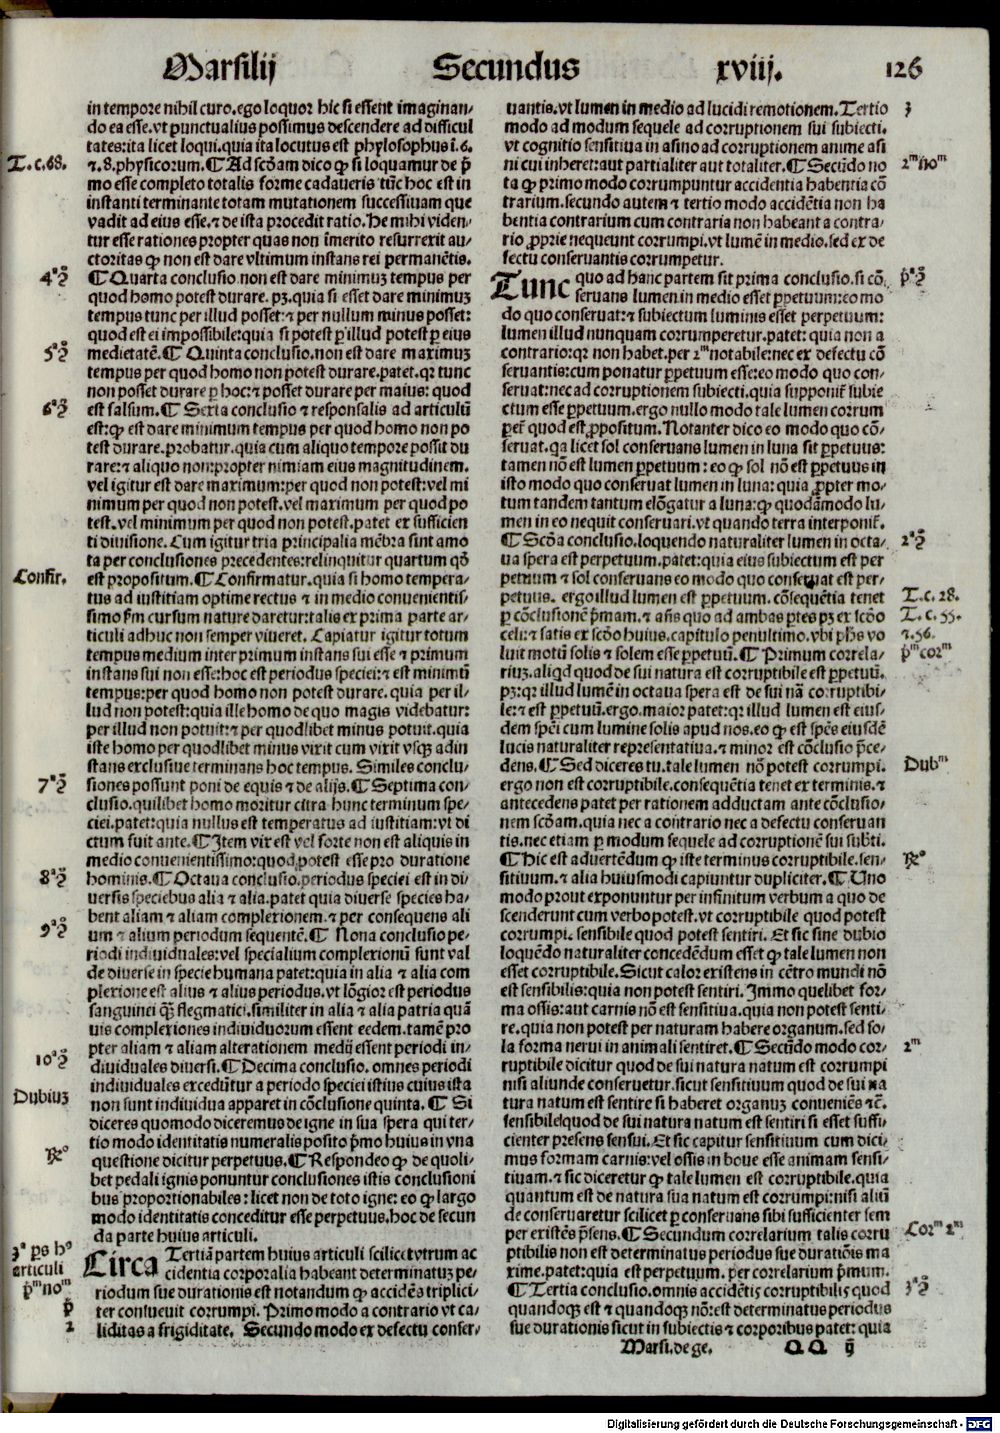 Marsilij Secundus xviij. 126
in tempore nihil curo. ego loquor hic si essent imaginan/
do ea esse. vt punctualius possimus descendere ad difficul
tates: ita licet loqui. quia ita locutus est phylosophus ī. 6.
T. c. 68. ⁊. 8. physicorum. ¶ Ad scōam dico ꝙ si loquamur de p̄
mo esse completo totalis forme cadaueris tūc hoc est in
instanti terminante totam mutationem successiuam que
vadit ad eius esse. ⁊ de ista procedit ratio. He mihi viden/
tur esse rationes propter quas non īmerito resurrexit au/
ctoritas ꝙ non est dare vltimum instans rei permanētis.
4ª ꝯ̄ ¶ Quarta conclusio non est dare minimuꝫ tempus per
quod homo potest durare. pꝫ. quia si esset dare minimuꝫ
tempus tunc per illud posset: ⁊ per nullum minus posset:
quod est ei impossibile: quia si potest ꝑ illud potest ꝑ eius
5ª ꝯ̄ medietatē. ¶ Quinta conclusio. non est dare maximuꝫ
tempus per quod homo non potest durare. patet. qꝛ tunc
non posset durare ꝑ hoc: ⁊ posset durare per maius: quod
6ª ꝯ̄ est falsum. ¶ Sexta conclusio ⁊ responsalis ad articulū
est: ꝙ est dare minimum tempus per quod homo non po
test durare. probatur. quia cum aliquo tempore possit du
rare: ⁊ aliquo non: propter nimiam eius magnitudinem.
vel igitur est dare maximum: per quod non potest: vel mi
nimum per quod non potest. vel maximum per quod po
test. vel minimum per quod non potest. patet ex sufficien
ti diuisione. Cum igitur tria principalia mēbra sint amo
ta per conclusiones precedentes: relinquitur quartum qḋ
Confir. est propositum. ¶ Confirmatur. quia si homo tempera/
tus ad iustitiam optime rectus ⁊ in medio conuenientis/
simo ẜm cursum nature daretur: talis ex prima parte ar/
ticuli adhuc non semper viueret. Capiatur igitur totum
tempus medium inter primum instans sui esse ⁊ primum
instans sui non esse: hoc est periodus speciei: ⁊ est minimū
tempus: per quod homo non potest durare. quia per il/
lud non potest: quia ille homo de quo magis videbatur:
per illud non potuit: ⁊ per quodlibet minus potuit. quia
iste homo per quodlibet minus vixit cum vixit vsqꝫ ad in
stans exclusiue terminans hoc tempus. Similes conclu/
7ª ꝯ̄ siones possunt poni de equis ⁊ de alijs. ¶ Septima con/
clusio. quilibet homo moritur citra hunc terminum spe/
ciei. patet: quia nullus est temperatus ad iustitiam: vt di
ctum fuit ante. ¶ Item vix est vel forte non est aliquis in
medio conuenientissimo: quod potest esse pro duratione
8ª ꝯ̄ hominis. ¶ Octaua conclusio. periodus speciei est in di/
uersis speciebus alia ⁊ alia. patet quia diuerse species ha/
bent aliam ⁊ aliam complexionem. ⁊ per consequens ali
9ª ꝯ̄ um ⁊ alium periodum sequentē. ¶ Nona conclusio pe/
riodi indiuiduales: vel specialium complexionū sunt val
de diuerse in specie humana patet: quia in alia ⁊ alia com
plexione est alius ⁊ alius periodus. vt lōgior est periodus
sanguinei qꝫ̄ flegmatici. similiter in alia ⁊ alia patria quā
uis complexiones indiuiduorum essent eedem. tamē pro
pter aliam ⁊ aliam alterationem medij essent periodi in/
10ª ꝯ̄ diuiduales diuersi. ¶ Decima conclusio. omnes periodi
indiuiduales excedūtur a periodo speciei istius cuius ista
Dubiuꝫ non sunt indiuidua apparet in cōclusione quinta. ¶ Si
diceres quomodo diceremus de igne in sua spera qui ter/
tio modo identitatis numeralis posito p̄mo huius in vna
℞º questione dicitur perpetuus. ¶ Respondeo ꝙ de quoli/
bet pedali ignis ponuntur conclusiones istis conclusioni
bus proportionabiles: licet non de toto igne: eo ꝙ largo
modo identitatis conceditur esse perpetuus. hoc de secun
da parte huius articuli.
3ª ps hº articuli Circa Tertiā partem huius articuli scilicet vtrum ac
cidentia corporalia habeant determinatuꝫ pe/
pᵐ noᵐ riodum sue durationis est notandum ꝙ accidēa triplici/
p̄ ter consueuit corrumpi. Primo modo a contrario vt ca/
2 liditas a frigiditate. Secundo modo ex defectu conser/
uantis. vt lumen in medio ad lucidi remotionem. Tertio 3
modo ad modum sequele ad corruptionem sui subiecti.
vt cognitio sensitiua in asino ad corruptionem anime asi
ni cui inheret: aut partialiter aut totaliter. ¶ Secūdo no 2ᵐ noᵐ
ta ꝙ primo modo corrumpuntur accidentia habentia cō
trarium. secundo autem ⁊ tertio modo accidētia non ha
bentia contrarium cum contraria non habeant a contra/
rio ꝓprie nequeunt corrumpi. vt lumē in medio. sed ex de
fectu conseruantis corrumpetur.
Tunc quo ad hanc partem sit prima conclusio. si cō. pª ꝯ̄
seruans lumen in medio esset ꝑpetuum: eo mo
do quo conseruat: ⁊ subiectum luminis esset perpetuum:
lumen illud nunquam corrumperetur. patet: quia non a
contrario: qꝛ non habet. per 2ᵐ notabile: nec ex defectu cō
seruantis: cum ponatur perpetuum esse: eo modo quo con/
seruat: nec ad corruptionem subiecti. quia supponit̄ subie
ctum esse ꝑpetuum. ergo nullo modo tale lumen corrum
peret̄ quod est ꝓpositum. Notanter dico eo modo quo cō/
seruat. qa licet sol conseruans lumen in luna sit ꝑpetuus:
tamen nō est lumen ꝑpetuum: eo ꝙ sol nō est ꝑpetuus in
isto modo quo conseruat lumen in luna: quia ꝓpter mo/
tum tandem tantum elōgatur a luna: ꝙ quodāmodo lu/
men in eo nequit conseruari. vt quando terra interponit̄.
¶ Scōa conclusio. loquendo naturaliter lumen in octa/ 2ª ꝯ̄
ua spera est perpetuum. patet: quia eius subiectum est per
petuum ⁊ sol conseruans eo modo quo conseruat est per/
petuus. ergo illud lumen est ꝑpetuum. cōsequētia tenet T. c. 28.
ꝑ cōclusionē p̄mam. ⁊ añs quo ad ambas ptes pꝫ ex scōo T. c. 55.
celi: ⁊ satis ex scōo huius. capitulo penultimo. vbi phs vo ⁊. 56.
luit motū solis ⁊ solem esse ꝑpetuū. ¶ Primum correla/ pᵐ corᵐ
riuꝫ. aliqd quod de sui natura est corruptibile est ꝑpetuū.
pꝫ: qꝛ illud lumē in octaua spera est de sui nā corruptibi/
le: ⁊ est ꝑpetuū. ergo. maior patet: qꝛ illud lumen est eius/
dem spēi cum lumine solis apud nos. eo ꝙ est spēs eiusdē
lucis naturaliter representatiua. ⁊ minor est cōclusio p̄ce/
dens. ¶ Sed diceres tu. tale lumen nō potest corrumpi. Dubᵐ
ergo non est corruptibile. consequētia tenet ex terminis. ⁊
antecedens patet per rationem adductam ante cōclusio/
nem scōam. quia nec a contrario nec a defectu conseruan
tis. nec etiam ꝑ modum sequele ad corruptionē sui subti.
¶ Hic est aduertēdum ꝙ iste terminus corruptibile. sen/ ℞º
sitiuum. ⁊ alia huiusmodi capiuntur dupliciter. ¶ Uno
modo prout exponuntur per infinitum verbum a quo de
scenderunt cum verbo potest. vt corruptibile quod potest
corrumpi. sensibile quod potest sentiri. Et sic sine dubio
loquēdo naturaliter concedēdum esset ꝙ tale lumen non
esset corruptibile. Sicut calor existens in cētro mundi nō
est sensibilis: quia non potest sentiri. Immo quelibet for/
ma ossis: aut carnis nō est sensitiua. quia non potest senti/
re. quia non potest per naturam habere organum. sed so/
la forma nerui in animali sentiret. ¶ Secūdo modo cor/ 2ᵐ
ruptibile dicitur quod de sui natura natum est corrumpi
nisi aliunde conseruetur. sicut sensitiuum quod de sui na
tura natum est sentire si haberet organuꝫ conueniēs ⁊c̄.
sensibile quod de sui natura natum est sentiri si esset suffi/
cienter presens sensui. Et sic capitur sensitiuum cum dici/
mus formam carnis: vel ossis in boue esse animam sensi/
tiuam. ⁊ sic diceretur ꝙ tale lumen est corruptibile. quia
quantum est de natura sua natum est corrumpi: nisi aliū
de conseruaretur scilicet ꝑ conseruans sibi sufficienter sem
per existēs p̄sens. ¶ Secundum correlarium talis corru Corᵐ 2ᵐ
ptibilis non est determinatus periodus sue duratiōis ma
xime. patet: quia est perpetuum. per correlarium p̄mum.
¶ Tertia conclusio. omnis accidētis corruptibilis quod 3ª ꝯ̄
quandoqꝫ est ⁊ quandoqꝫ nō: est determinatus periodus
sue durationis sicut in subiectis ⁊ corporibus patet: quia
Marsi. de ge. QQ ij
Digitalisierung gefördert durch die Deutsche Forschungsgemeinschaft - DFG